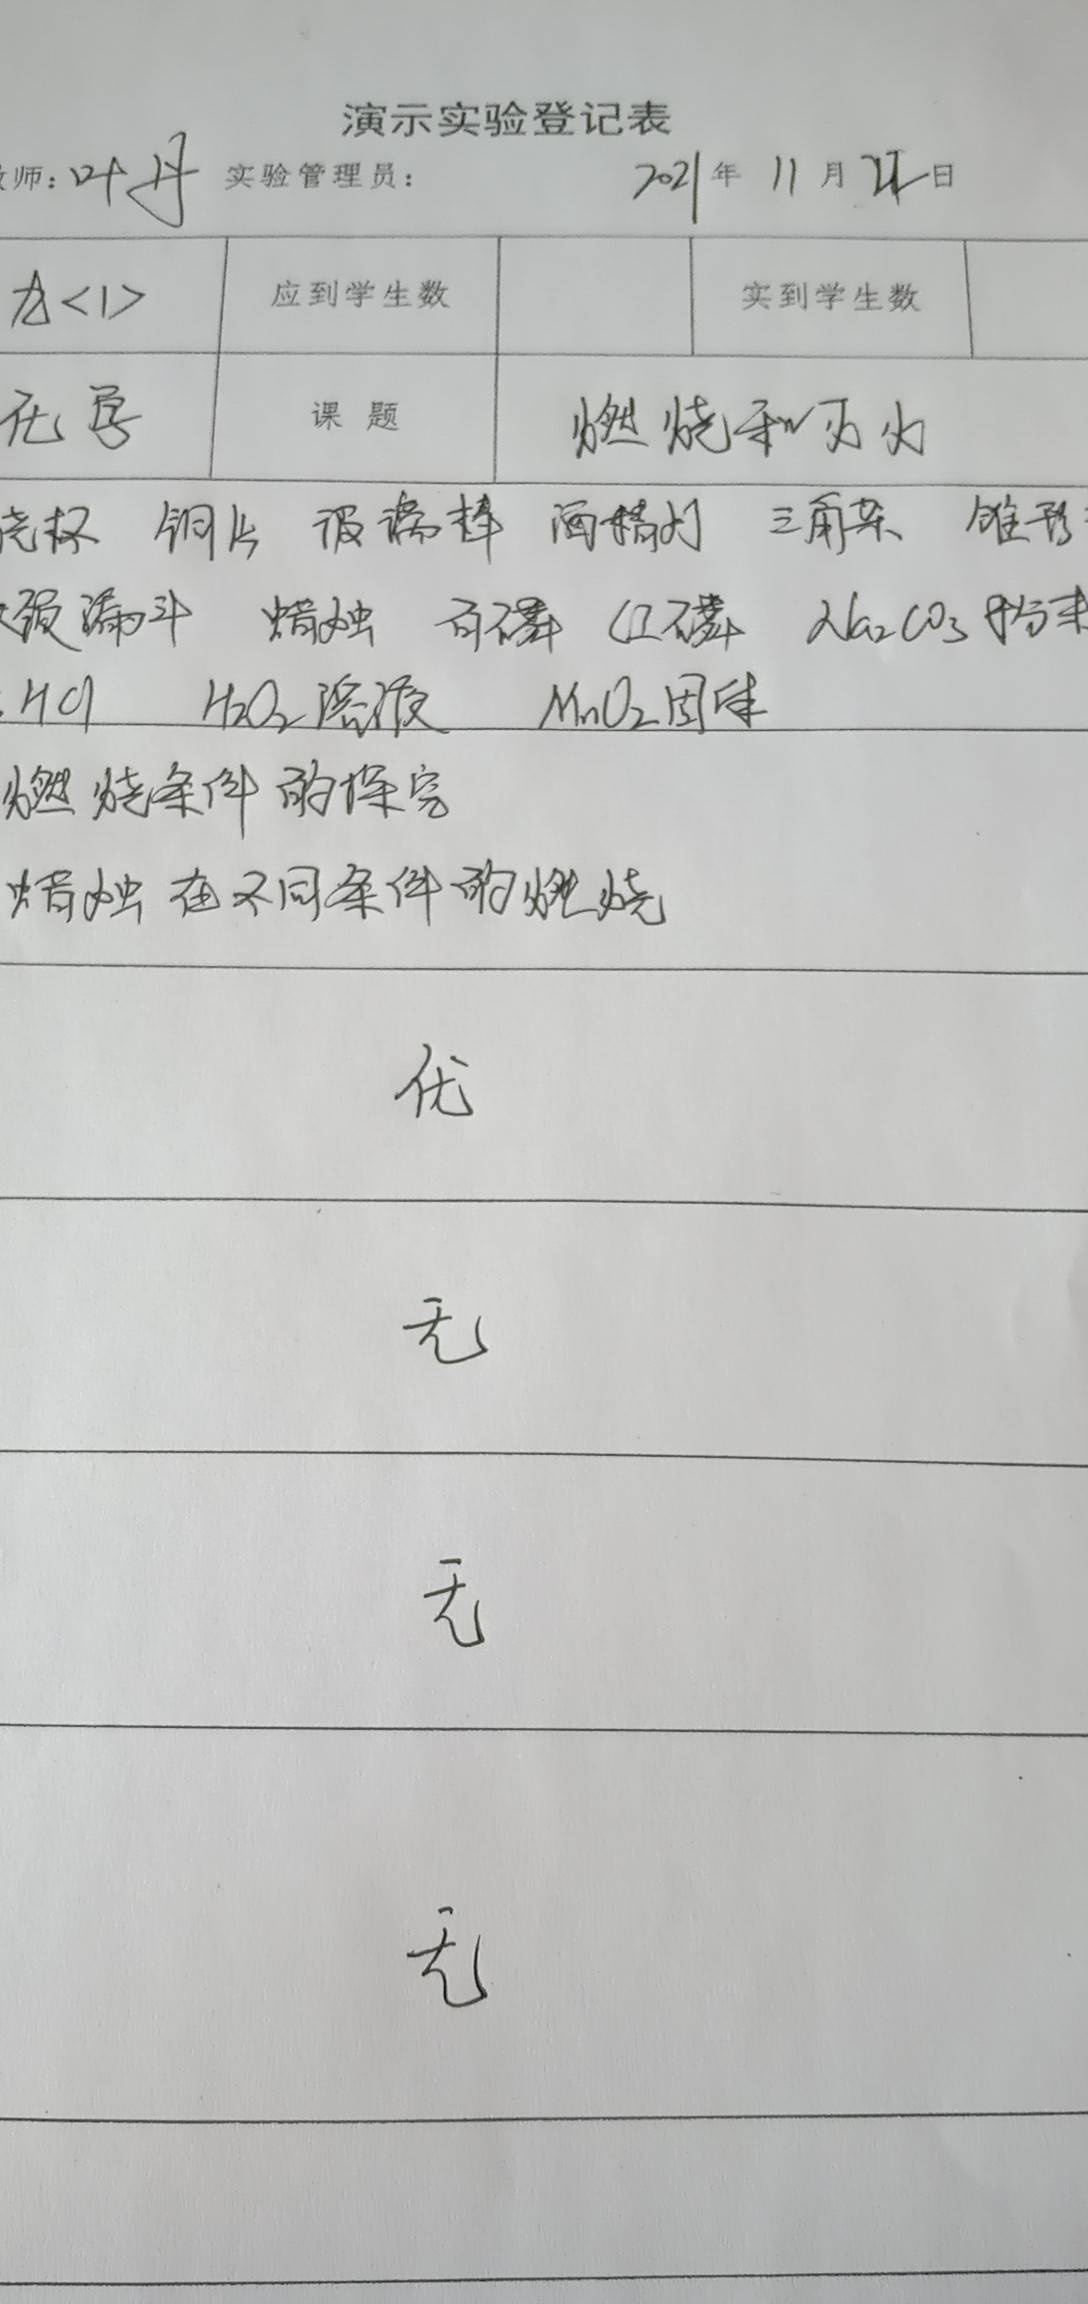 演示实验登记表
师：叶丹 实验管理员： 2021年 11月 日
九<1> 应到学生数 实到学生数
化学 课题 燃烧和灭火
烧杯 铜片 玻璃棒 酒精灯 三角架 锥形
长颈漏斗 蜡烛 白磷 红磷 Na₂CO₃粉末
HCl H₂O₂溶液 MnO₂固体
燃烧条件的探究
蜡烛在不同条件的燃烧
优
无
无
无